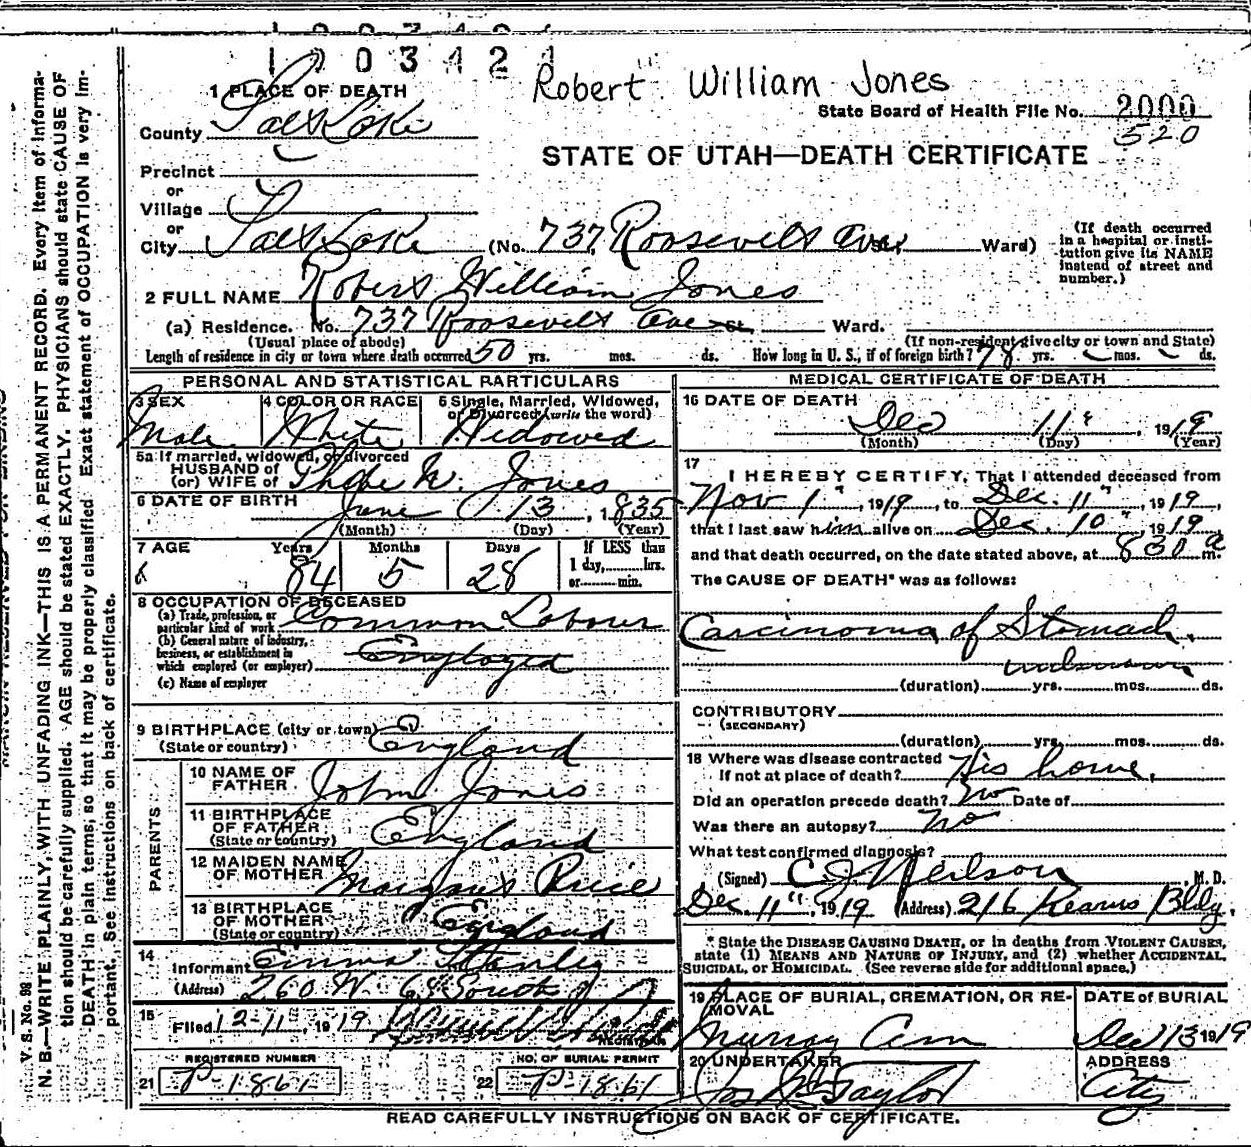 1003421
Robert William Jones
1 PLACE OF DEATH
State Board of Health File No. 2000
520
County Salt Lake
STATE OF UTAH—DEATH CERTIFICATE
Precinct
or
Village
or
City Salt Lake (No. 737, Roosevelt Ave St, Ward) (If death occurred in a hospital or institution give its NAME instead of street and number.)
2 FULL NAME Robert William Jones
(a) Residence. No. 737 Roosevelt Ave St. Ward.
(Usual place of abode) (If non-resident give city or town and State)
Length of residence in city or town where death occurred 50 yrs. mos. ds. How long in U. S., if of foreign birth? 78 yrs. mos. ds.
PERSONAL AND STATISTICAL PARTICULARS
3 SEX Male
4 COLOR OR RACE White
5 Single, Married, Widowed, or Divorced (write the word) Widowed
5a If married, widowed, or divorced
HUSBAND of
(or) WIFE of Phebe M. Jones
6 DATE OF BIRTH June 13, 1835
(Month) (Day) (Year)
7 AGE Years 84 Months 5 Days 28 If LESS than 1 day, hrs. or min.
8 OCCUPATION OF DECEASED
(a) Trade, profession, or particular kind of work Common Labour
(b) General nature of industry, business, or establishment in which employed (or employer) Employed
(c) Name of employer
9 BIRTHPLACE (city or town)
(State or country) England
PARENTS
10 NAME OF FATHER John Jones
11 BIRTHPLACE OF FATHER (State or country) England
12 MAIDEN NAME OF MOTHER Price
13 BIRTHPLACE OF MOTHER (State or country) England
14 Informant Emma Stanley
(Address) 260 W. 6th South
15 Filed 12-11, 1919 REGISTRAR
REGISTERED NUMBER
21 P-1861
NO. OF BURIAL PERMIT
22 P-1861
MEDICAL CERTIFICATE OF DEATH
16 DATE OF DEATH
Dec 11, 1919
(Month) (Day) (Year)
17 I HEREBY CERTIFY, That I attended deceased from
Nov 1", 1919, to Dec. 11", 1919,
that I last saw him alive on Dec. 10" 1919
and that death occurred, on the date stated above, at 830 a m.
The CAUSE OF DEATH* was as follows:
Carcinoma of Stomach.
unknown
(duration) yrs. mos. ds.
CONTRIBUTORY
(SECONDARY)
(duration) yrs. mos. ds.
18 Where was disease contracted
If not at place of death? His home.
Did an operation precede death? No Date of
Was there an autopsy? No
What test confirmed diagnosis?
(Signed) C J Neilson, M. D.
Dec. 11", 1919 (Address) 216 Kearns Bldg.
* State the DISEASE CAUSING DEATH, or in deaths from VIOLENT CAUSES, state (1) MEANS AND NATURE OF INJURY, and (2) whether ACCIDENTAL, SUICIDAL, or HOMICIDAL. (See reverse side for additional space.)
19 PLACE OF BURIAL, CREMATION, OR REMOVAL
Murray Cem
DATE of BURIAL
Dec 13 1919
20 UNDERTAKER
Jos Wm Taylor
ADDRESS
City
READ CAREFULLY INSTRUCTIONS ON BACK OF CERTIFICATE.
V. S. No. 98
N. B.—WRITE PLAINLY, WITH UNFADING INK—THIS IS A PERMANENT RECORD. Every item of information should be carefully supplied. AGE should be stated EXACTLY. PHYSICIANS should state CAUSE OF DEATH in plain terms, so that it may be properly classified. Exact statement of OCCUPATION is very important. See instructions on back of certificate.